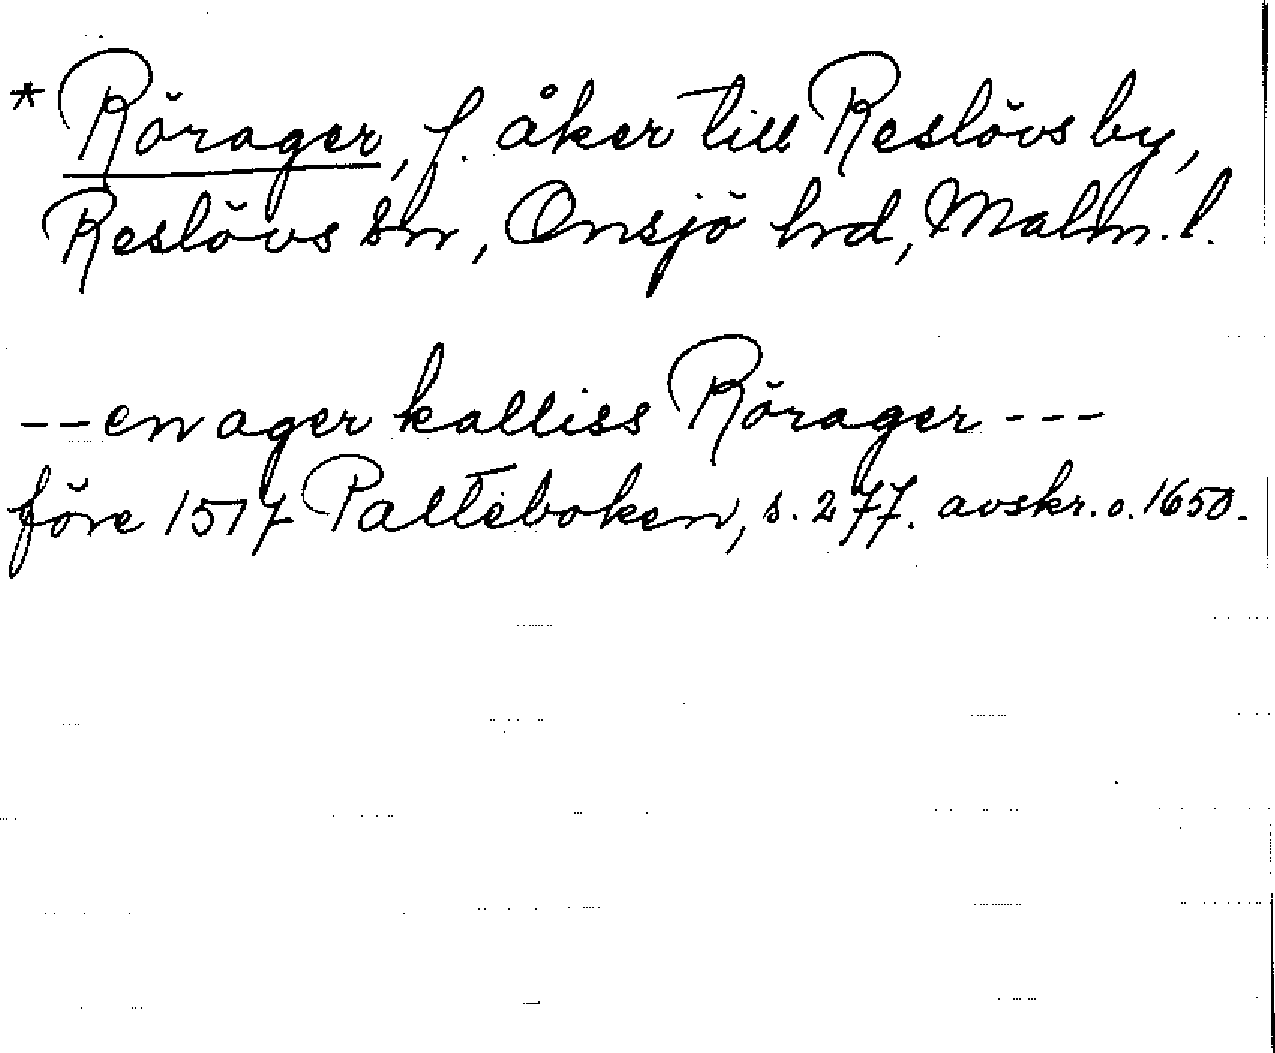 * Rörager, f. åker till Reslövs by,
Reslövs sn, Onsjö hrd, Malm. l.
-- en ager kalliss Rörager ---
före 1517 Palteboken, s. 277. avskr. o. 1650.